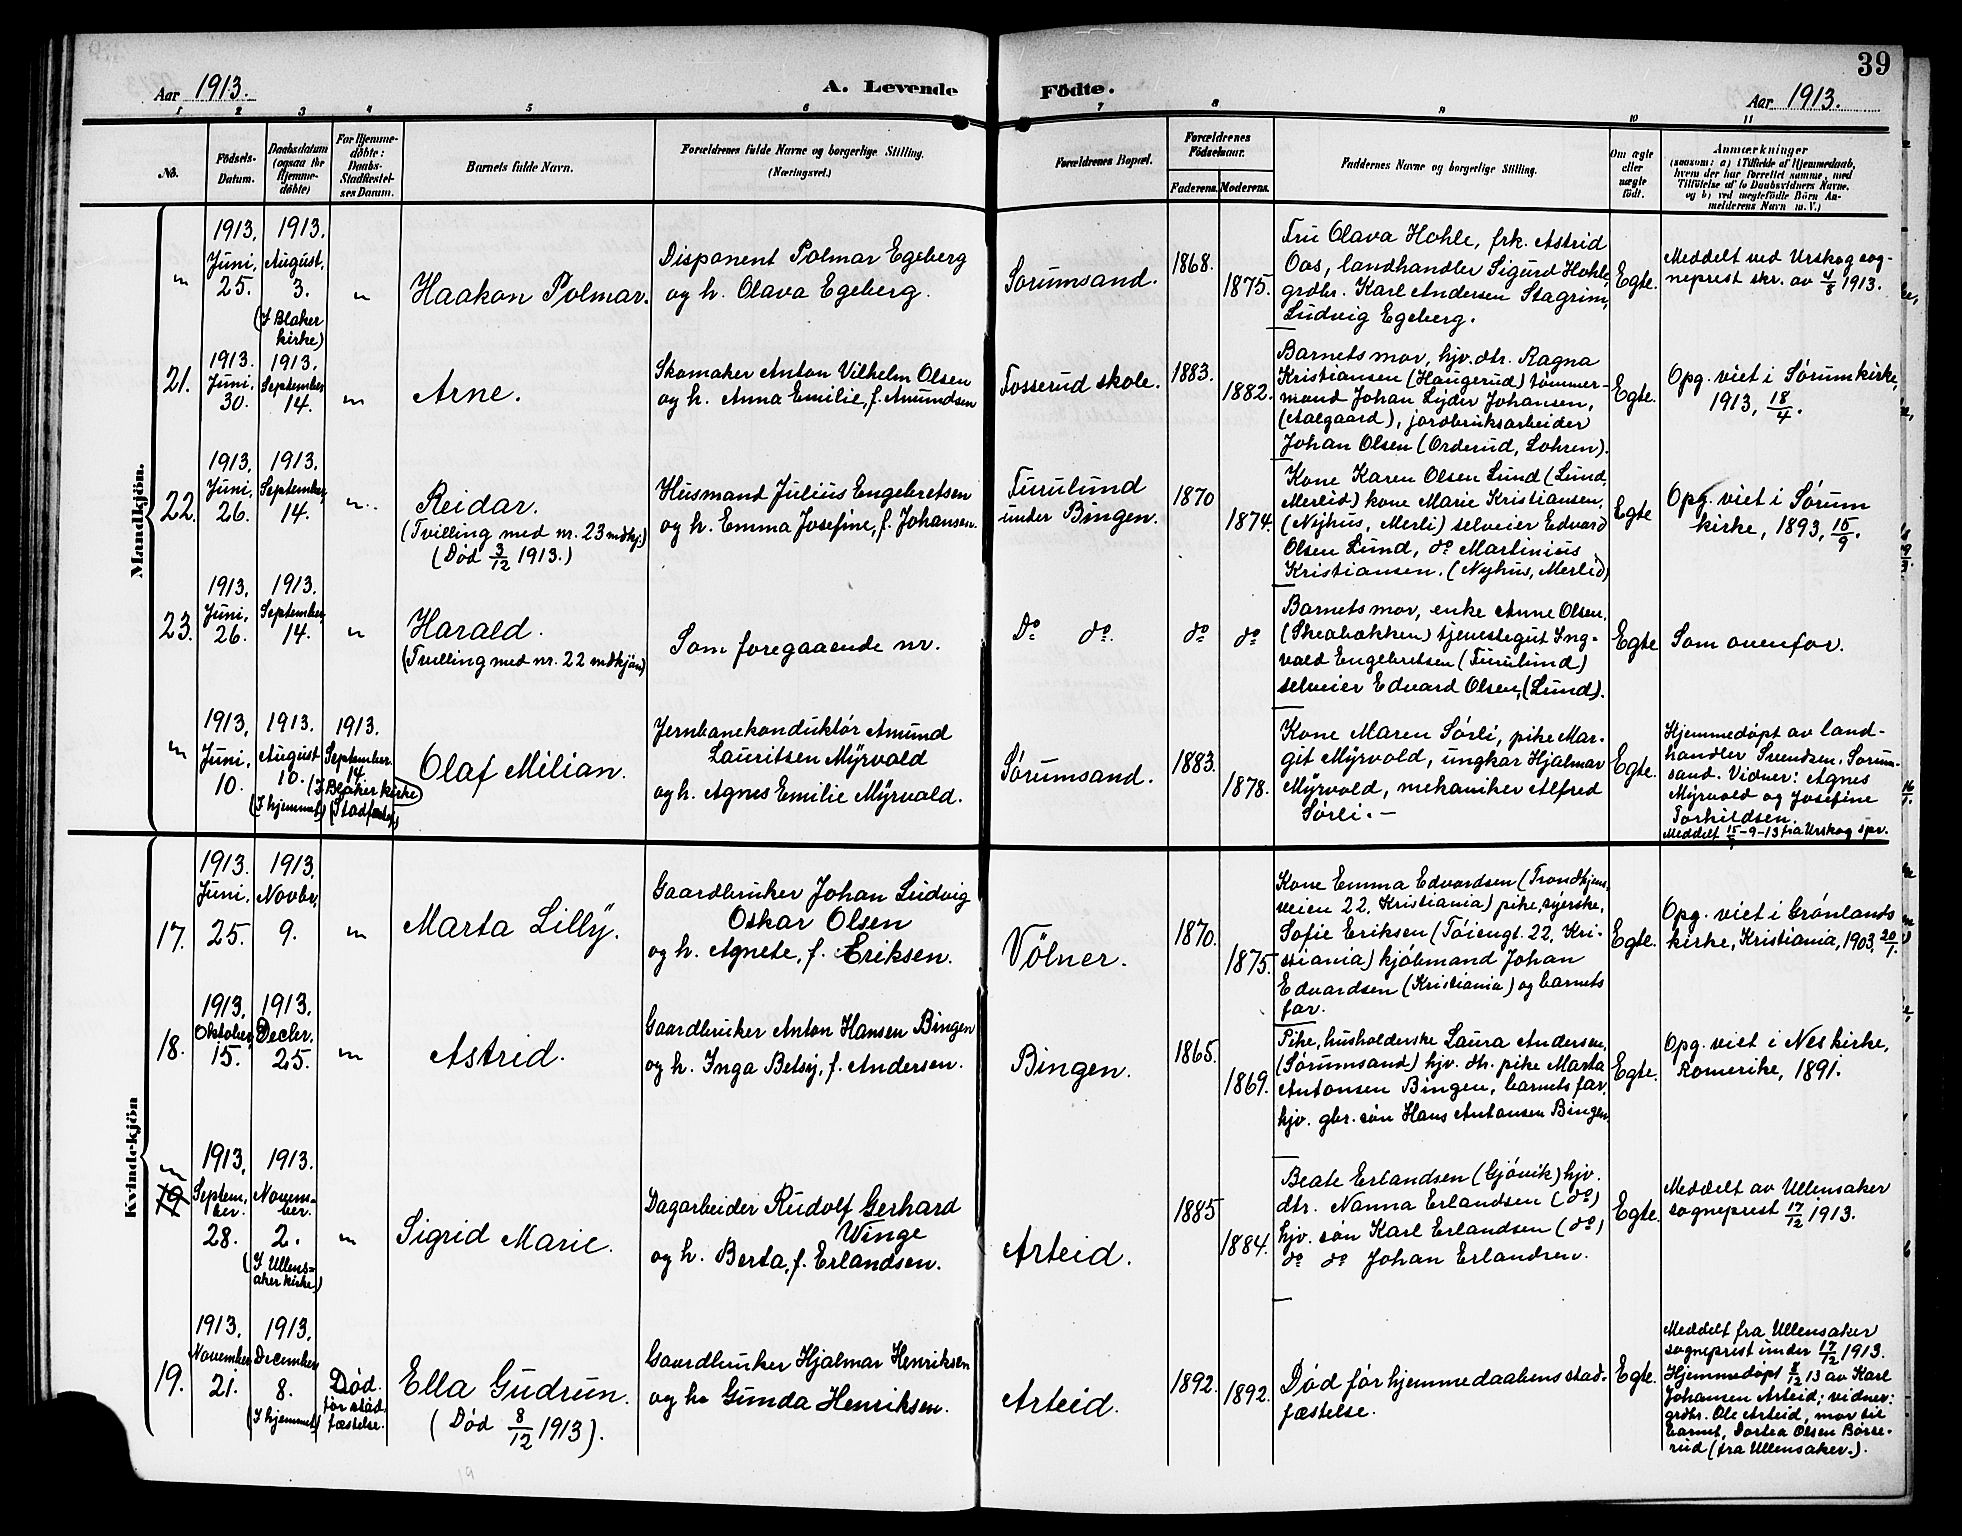 39
Aar 1913.
A. Levende
Födte.
Aar 1913.
1 2 3 4 5 6 7 8 9 10 11
No.
Födsels-
Datum.
Daabsdatum
(ogsaa for
Hjemme-
döbte)
For Hjemme-
döbte:
Daabs-
Stadfæstel-
ses Datum.
Barnets fulde Navn.
Forældrenes fulde Navne og borgerlige Stilling.
(Næringsvei.)
Forældrenes Bopæl.
Forældrenes
Födselsaar.
Faderens. Moderens.
Faddernes Navne og borgerlige Stilling.
Om ægte
eller
uægte
født.
Anmærkninger
(saasom: a) i Tilfælde af Hjemmedaab,
hvem der har forrettet samme, med
Tilföielse af to Daabsvidners Navne,
og b) ved uegtefödte Börn An-
melderens Navn m. V.)
Mandkjön.
"
1913.
Juni,
25.
1913.
August,
3.
(I Blaker
kirke)
"
Haakon Polmar.
Disponent Polmar Egeberg
og h. Olava Egeberg.
Sørumsand.
1868.
1875.
Fru Olava Hohle, frk. Astrid
Oos, landhandler Sigurd Hohle,
grdbr. Karl Andersen Stagrim,
Ludvig Egeberg.
Egte.
Meddelt ved Urskog sog-
neprest skr. av 4/8 1913.
21.
1913.
Juni,
30.
1913.
September
14.
"
Arne.
Skomaker Anton Vilhelm Olsen
og h. Anna Emilie, f. Amundsen
Fosserud skole.
1883.
1882.
Barnets mor, hjv. dtr. Ragna
Kristiansen (Haugerud) tømmer-
mand Johan Lyder Johansen,
(Aalgaard), jordbruksarbeider
Johan Olsen (Orderud, Lohren).
Egte.
Opg. viet i Sørum kirke,
1913, 18/4.
22.
1913.
Juni,
26.
1913.
September
14.
"
Reidar.
(Tvilling med nr. 23 mdkj.)
(Død 3/12 1913.)
Husmand Julius Engebretsen
og h. Emma Josefine, f. Johansen.
Furulund
under Bingen.
1870
1874.
Kone Karen Olsen Lund (Lund,
Merlid) kone Marie Kristiansen,
(Nyhus, Merli) selveier Edvard
Olsen Lund, do Martinius
Kristiansen. (Nyhus, Merlid)
Egte
Opg. viet i Sørum
kirke, 1893, 15/9.
23.
1913.
Juni,
26.
1913.
September
14.
"
Harald.
(Tvilling med nr. 22 mdkjøn)
Som foregaaende nr.
Do do.
do
do
Barnets mor, enke Anne Olsen,
(Skeabakken) tjenestegut Ing-
vald Engebretsen (Furulund)
selveier Edvard Olsen, (Lund).
Egte
Som ovenfor.
"
1913.
Juni,
10.
1913.
August
10.
(I hjemmet)
1913.
September
14.
(I Blaker kirke
(Stadfæstet)
Olaf Milian.
Jernbanekonduktør Amund
Lauritsen Myrvold
og h. Agnes Emilie Myrvold.
Sørumsand.
1883.
1878.
Kone Maren Sørli, pike Mar-
git Myrvold, ungkar Hjalmar
Myrvold, mekaniker Alfred
Sørli. -
Egte.
Hjemmedøpt av land-
handler Svendsen, Sørum-
sand. Vidner: Agnes
Myrvold og Josefine
Torkildsen.
Meddelt 15-9-13 fra Urskog spr.
Kvindekjön
17.
1913.
Juni,
25.
1913.
Novbr.
9.
"
Marta Lilly.
Gaardbruker Johan Ludvig
Oskar Olsen
og h. Agnete, f. Eriksen.
Vølner.
1870.
1875.
Kone Emma Edvardsen (Trondhjems-
veien 22, Kristiania) pike, syerske,
Sofie Eriksen (Tøiengt. 22, Kri-
stiania) kjølmand Johan
Edvardsen (Kristiania) og barnets
far.
Egte.
Opg. viet i Grønlands
kirke, Kristiania, 1903, 20/1.
18.
1913.
Oktober
15.
1913.
Decbr.
25.
"
Astrid.
Gaardbruker Anton Hansen Bingen
og h. Inga Betsy, f. Andersen.
Bingen.
1865.
1869.
Pike, husholderske Laura Andersen,
(Sørumsand) hjv. dtr. pike Marta
Antonsen Bingen, barnets far,
hjv. gbr. søn Hans Antonsen Bingen.
Egte.
Opg. viet i Nes kirke,
Romerike, 1891.
"
19
1913.
Septem-
ber.
28.
1913.
Novem-
ber.
2.
(I Ullens-
aker kirke)
"
Sigrid Marie.
Dagarbeider Rudolf Gerhard
Winge
og h. Berta, f. Erlandsen.
Arteid.
1885
1884.
Beate Erlandsen (Gjøvik) hjv.
dtr. Nanna Erlandsen (do)
hjv. søn Karl Erlandsen (do)
do do Johan Erlandsen.
Egte.
Meddelt av Ullensaker
sogneprest 17/12 1913.
19.
1913.
November
21.
1913.
December
8.
(I hjemmet)
Død.
før stad-
fæstelse.
Ella Gudrun.
(Død 8/12 1913).
Gaardbruker Hjalmar Henriksen
og h. Gunda Henriksen.
Arteid.
1892.
1892.
Død før hjemmedaabens stad-
fæstelse.
Egte.
Meddelt fra Ullensaker
sogneprest under 17/12 1913.
Hjemmedøpt 8/12 13 av Karl
Johansen Arteid; vidner:
grdbr. Ole Arteid, mor til
barnet, Dortea Olsen Børse-
rud (fra Ullensaker.).
19